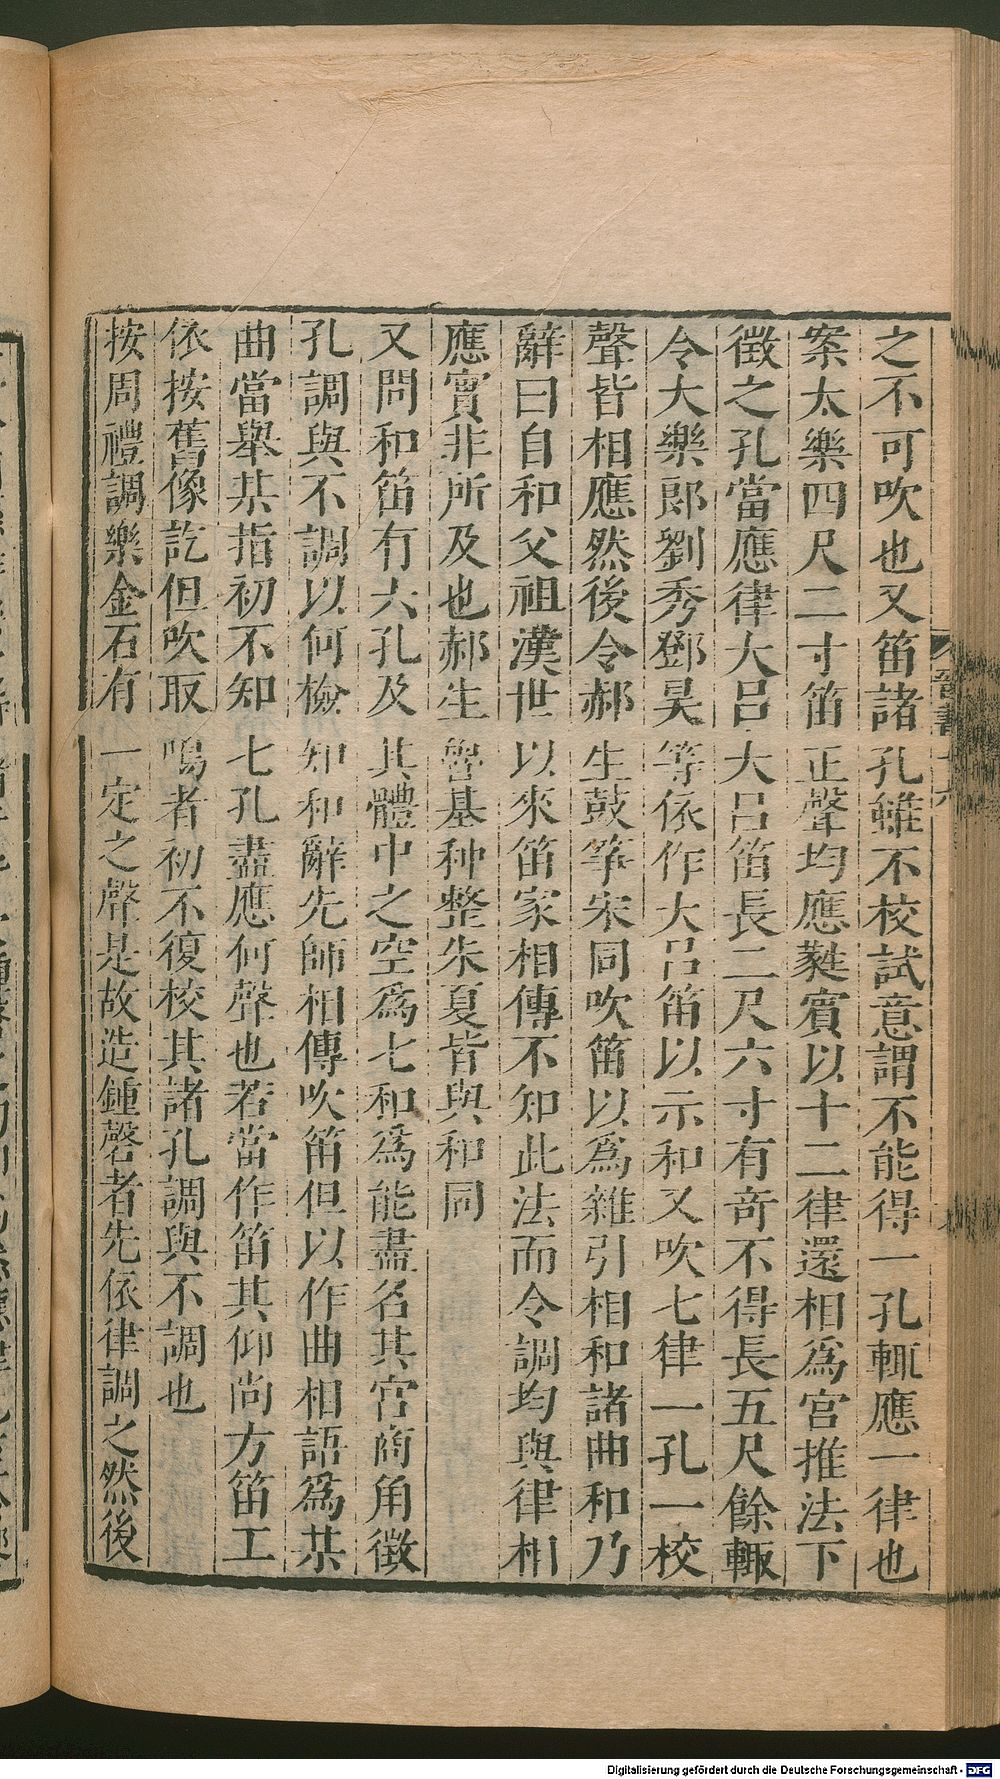 之不可吹也又笛諸孔雖不校試意謂不能得一孔輒應一律也
案太樂四尺二寸笛正聲均應蕤賓以十二律還相爲宮推法下
徵之孔當應律大呂大呂笛長二尺六寸有奇不得長五尺餘輒
令大樂郎劉秀鄧昊等依作大呂笛以示和又吹七律一孔一校
聲皆相應然後令郝生鼓箏宋同吹笛以爲雜引相和諸曲和乃
辭曰自和父祖漢世以來笛家相傳不知此法而令調均與律相
應實非所及也郝生魯基种整朱夏皆與和同
又問和笛有六孔及其體中之空爲七和爲能盡名其宮商角徵
孔調與不調以何檢知和辭先師相傳吹笛但以作曲相語爲某
曲當舉某指初不知七孔盡應何聲也若當作笛其仰尚方笛工
依按舊像訖但吹取鳴者初不復校其諸孔調與不調也
按周禮調樂金石有一定之聲是故造鍾磬者先依律調之然後
Digitalisierung gefördert durch die Deutsche Forschungsgemeinschaft - DFG